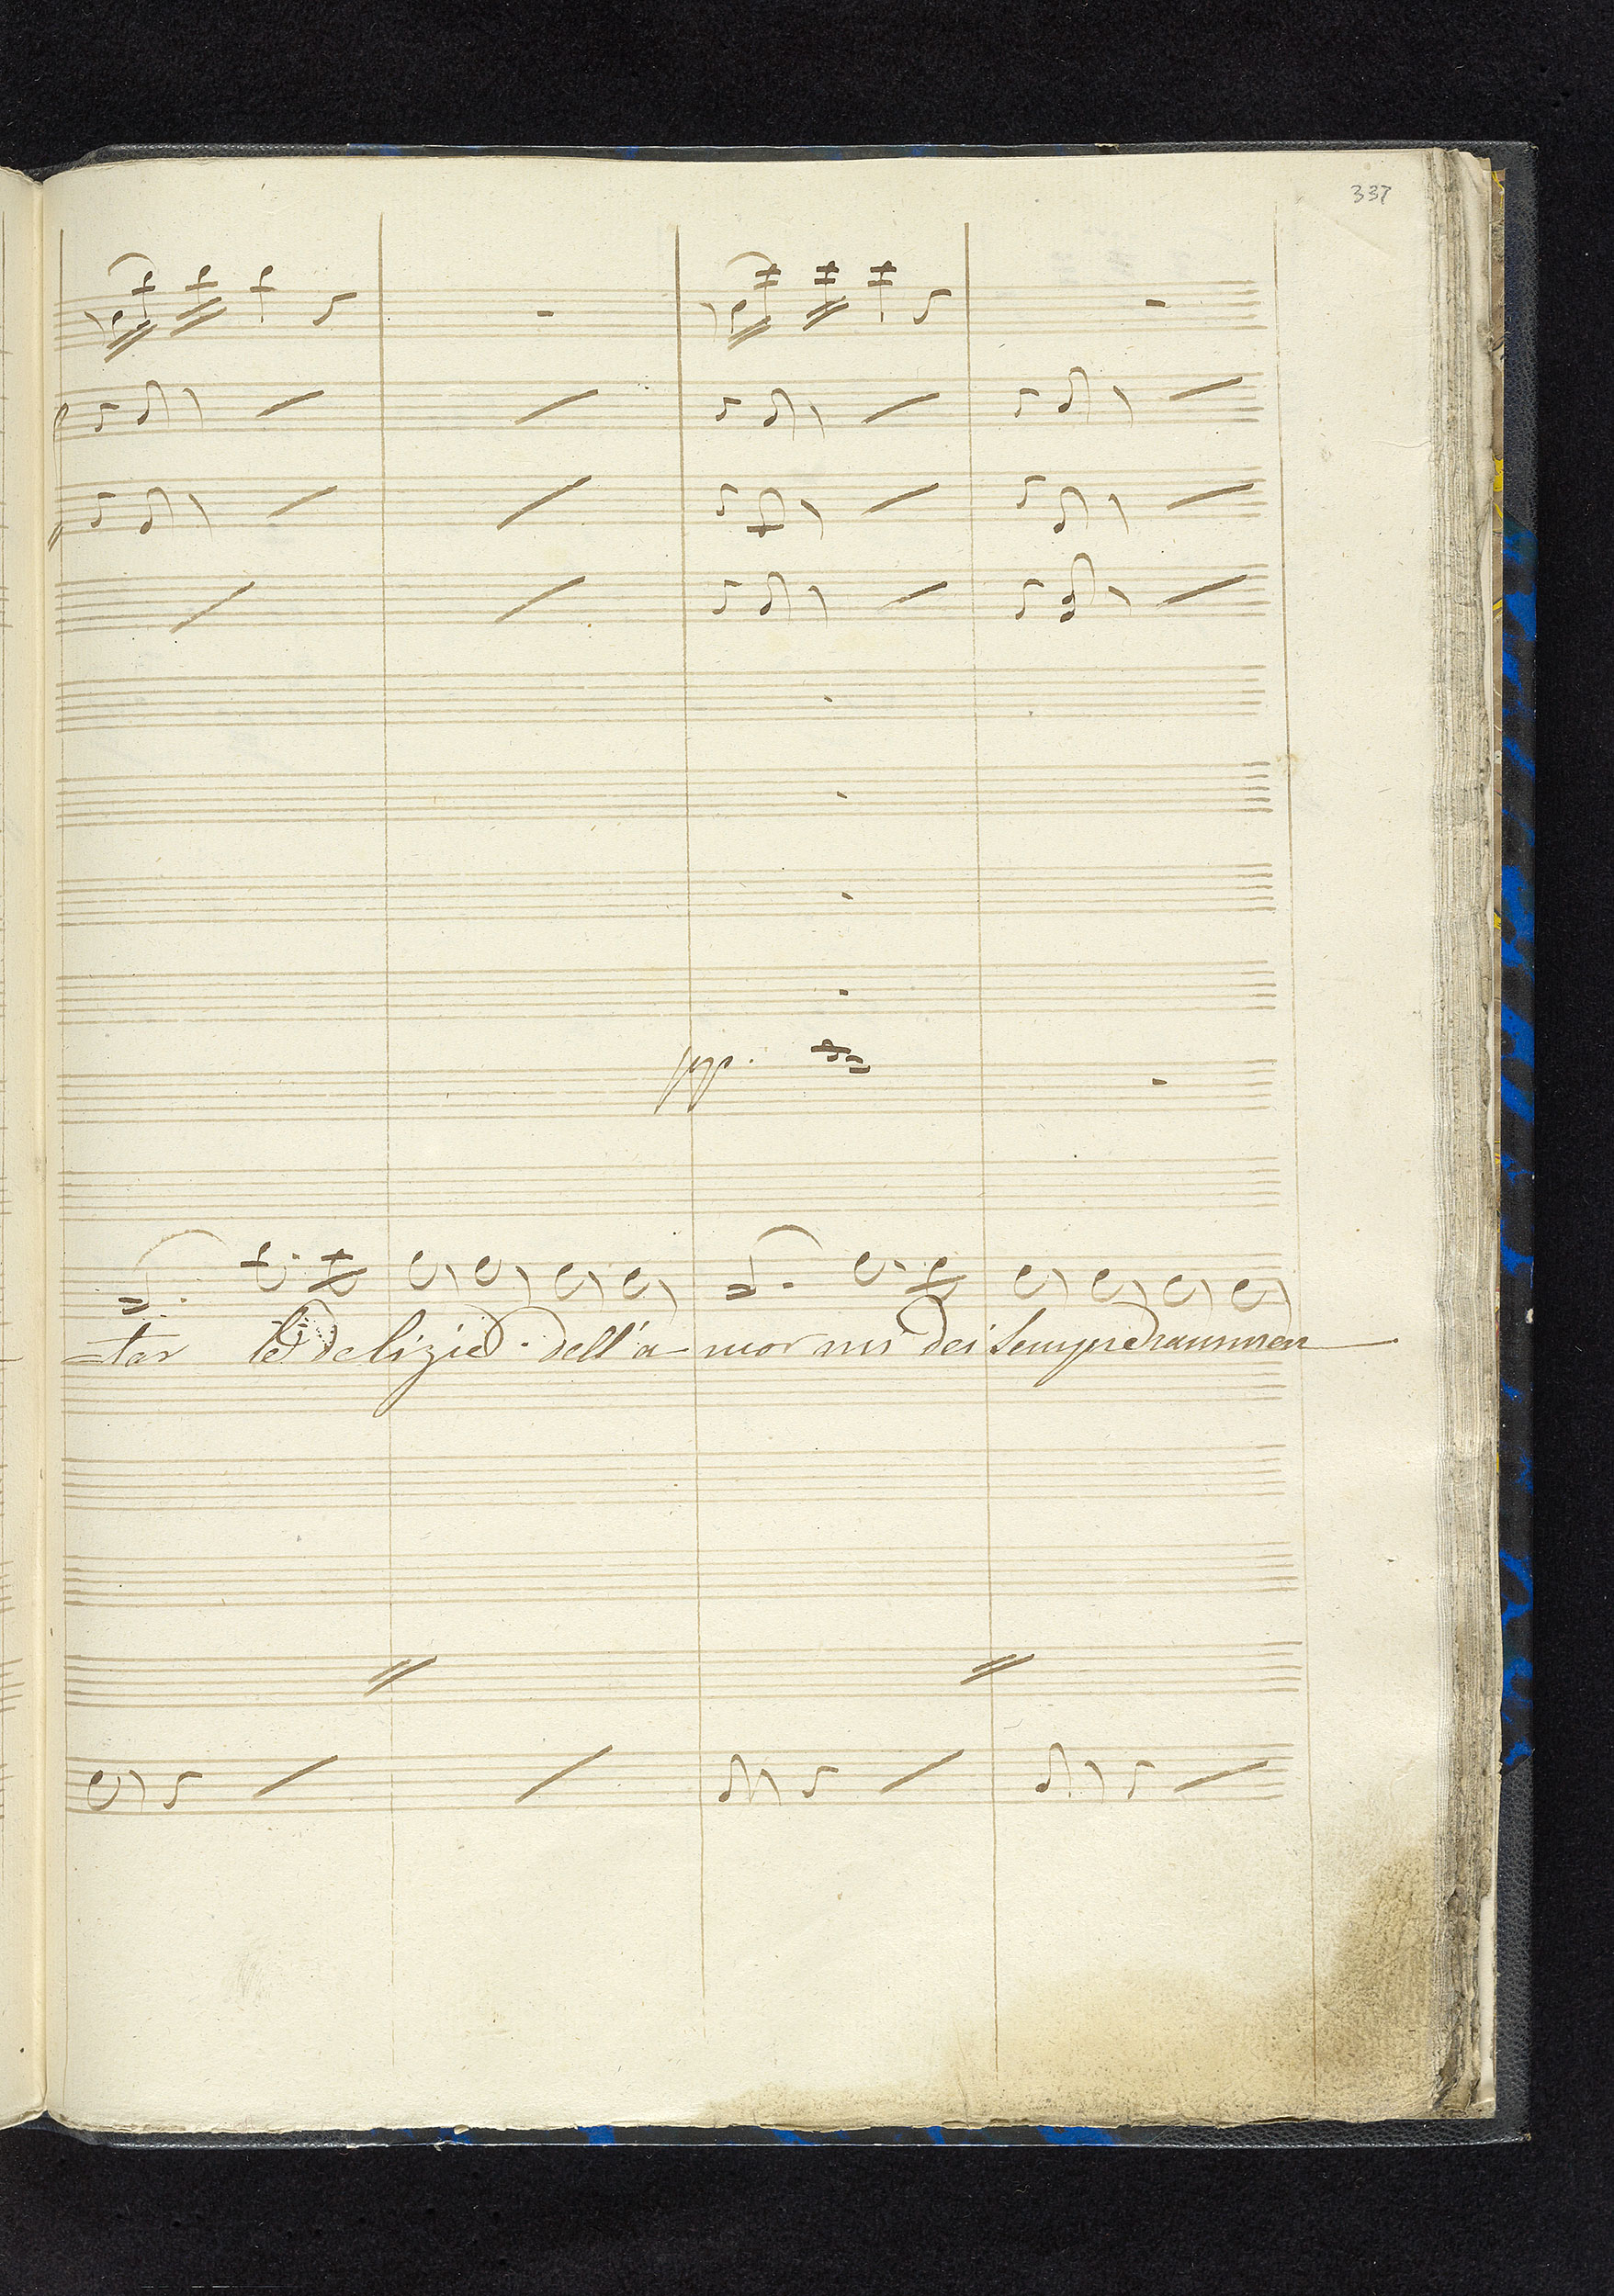 337
ppp.
ter le delizie dell'a mor mi dei sempre rammen